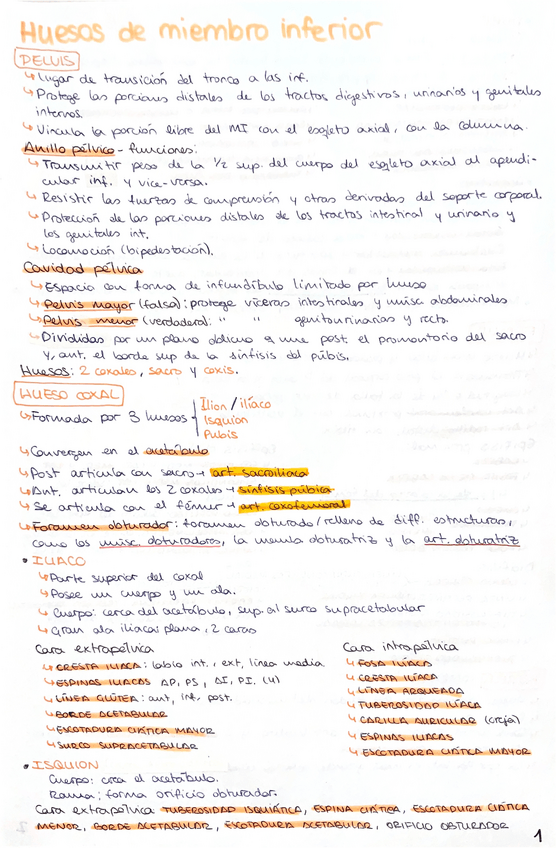 Huesos de miembro inferior
PELVIS
↳ Lugar de transición del tronco a las inf.
↳ Protege las porciones distales de los tractos digestivos, urinarios y genitales
internos.
↳ Vincula la porción libre del MI con el esqleto axial, con la columna.
Anillo pélvico - funciones:
↳ Transmitir peso de la 1/2 sup. del cuerpo del esqleto axial al apendi-
cular inf. y vice-versa.
↳ Resistir las fuerzas de compresión y otras derivadas del soporte corporal.
↳ Protección de las porciones distales de los tractos intestinal y urinario y
los genitales int.
↳ Locomoción (bipedestación).
Cavidad pélvica
↳ Espacio con forma de infundíbulo limitado por hueso
↳ Pelvis mayor (falsa): protege víceras intestinales y músc abdominales
↳ Pelvis menor (verdadera): " " genitourinarias y recto.
↳ Divididas por un plano oblicuo q une post. el promontorio del sacro
y, ant. el borde sup de la sínfisis del pubis.
Huesos: 2 coxales, sacro y coxis.
HUESO COXAL
↳ Formada por 3 huesos
Ilion/ilíaco
Isquion
Pubis
↳ Convergen en el acetábulo
↳ Post articula con sacro → art. sacroilíaca
↳ Ant. articulan los 2 coxales → sínfisis púbica
↳ Se articula con el fémur → art. coxofemoral
↳ Foramen obturador: foramen obturado/relleno de diff. estructuras,
como los músc. obturadores, la memb obturatriz y la art. obturatriz
• ILIACO
↳ Parte superior del coxal
↳ Posee un cuerpo y un ala.
↳ Cuerpo: cerca del acetábulo, sup. al surco supracetabular
↳ Gran ala iliaca: plana, 2 caras
Cara extrapélvica
↳ CRESTA ILIACA: labio int., ext, línea media
↳ ESPINAS ILIACAS AP, PS, AI, PI. (4)
↳ LÍNEA GLÚTEA: ant, inf, post.
↳ BORDE ACETABULAR
↳ ESCOTADURA CIÁTICA MAYOR
↳ SURCO SUPRACETABULAR
Cara intrapélvica
↳ FOSA ILIACA
↳ CRESTA ILÍACA
↳ LÍNEA ARQUEADA
↳ TUBEROSIDAD ILÍACA
↳ CARILLA AURICULAR (oreja)
↳ ESPINAS ILIACAS
↳ ESCOTADURA CIÁTICA MAYOR
• ISQUION
Cuerpo: crea el acetábulo.
Rama: forma orificio obturador.
Cara extrapélvica TUBEROSIDAD ISQUIÁTICA, ESPINA CIÁTICA, ESCOTADURA CIÁTICA
MENOR, BORDE ACETABULAR, ESCOTADURA ACETABULAR, ORIFICIO OBTURADOR
1